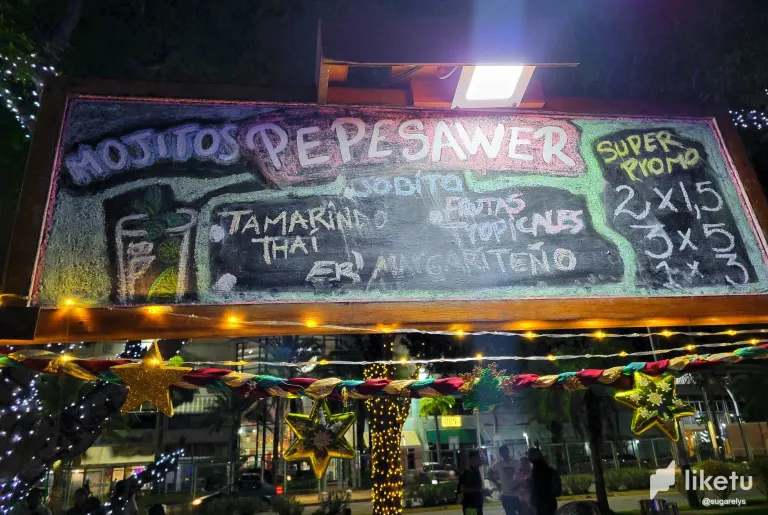 MOJITOS PEPESAWER
JOBITO
TAMARINDO
THAI
FRUTAS
TROPICALES
ER' MARGARITEÑO
SUPER
PROMO
2x1,5
3x5
1x3
liketu
@sugarelys